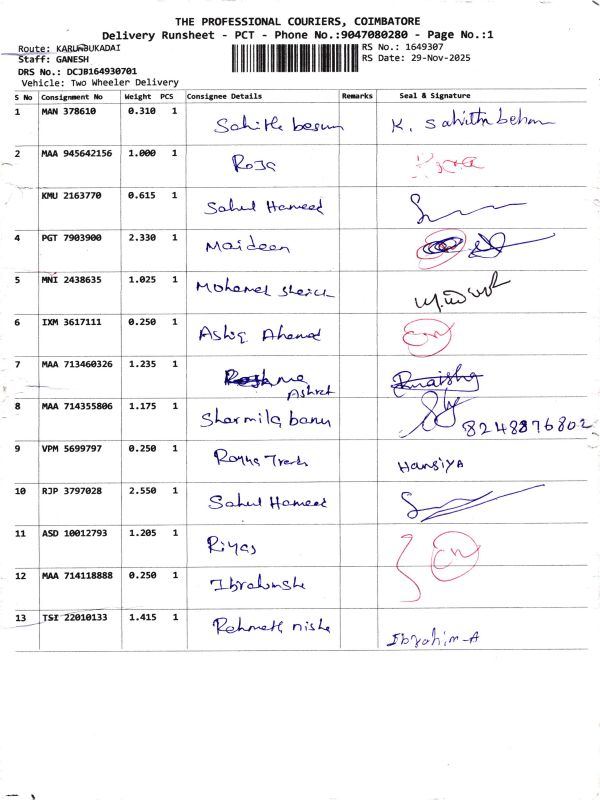 THE PROFESSIONAL COURIERS, COIMBATORE
Delivery Runsheet - PCT - Phone No.:9047080280 - Page No.:1
Route: KARUMBUKADAI RS No.: 1649307
Staff: GANESH RS Date: 29-Nov-2025
DRS No.: DCJB164930701
Vehicle: Two Wheeler Delivery
S No Consignment No Weight PCS Consignee Details Remarks Seal & Signature
1 MAN 378610 0.310 1 Sahitha begum K. Sahitha behan
2 MAA 945642156 1.000 1 Roja
KMU 2163770 0.615 1 Sahul Hameed
4 PGT 7903900 2.330 1 Maideen
5 MNI 2438635 1.025 1 Mohamed sheick
6 IXM 3617111 0.250 1 Ashiq Ahamed
7 MAA 713460326 1.235 1
Ashref
8 MAA 714355806 1.175 1 Sharmila banu 8248876802
9 VPM 5699797 0.250 1 Hansiya
10 RJP 3797028 2.550 1 Sahul Hameed
11 ASD 10012793 1.205 1 Riyas
12 MAA 714118888 0.250 1 Ibrahimsha
13 TSI 22010133 1.415 1 Rehmath nisha Ibrahim-A